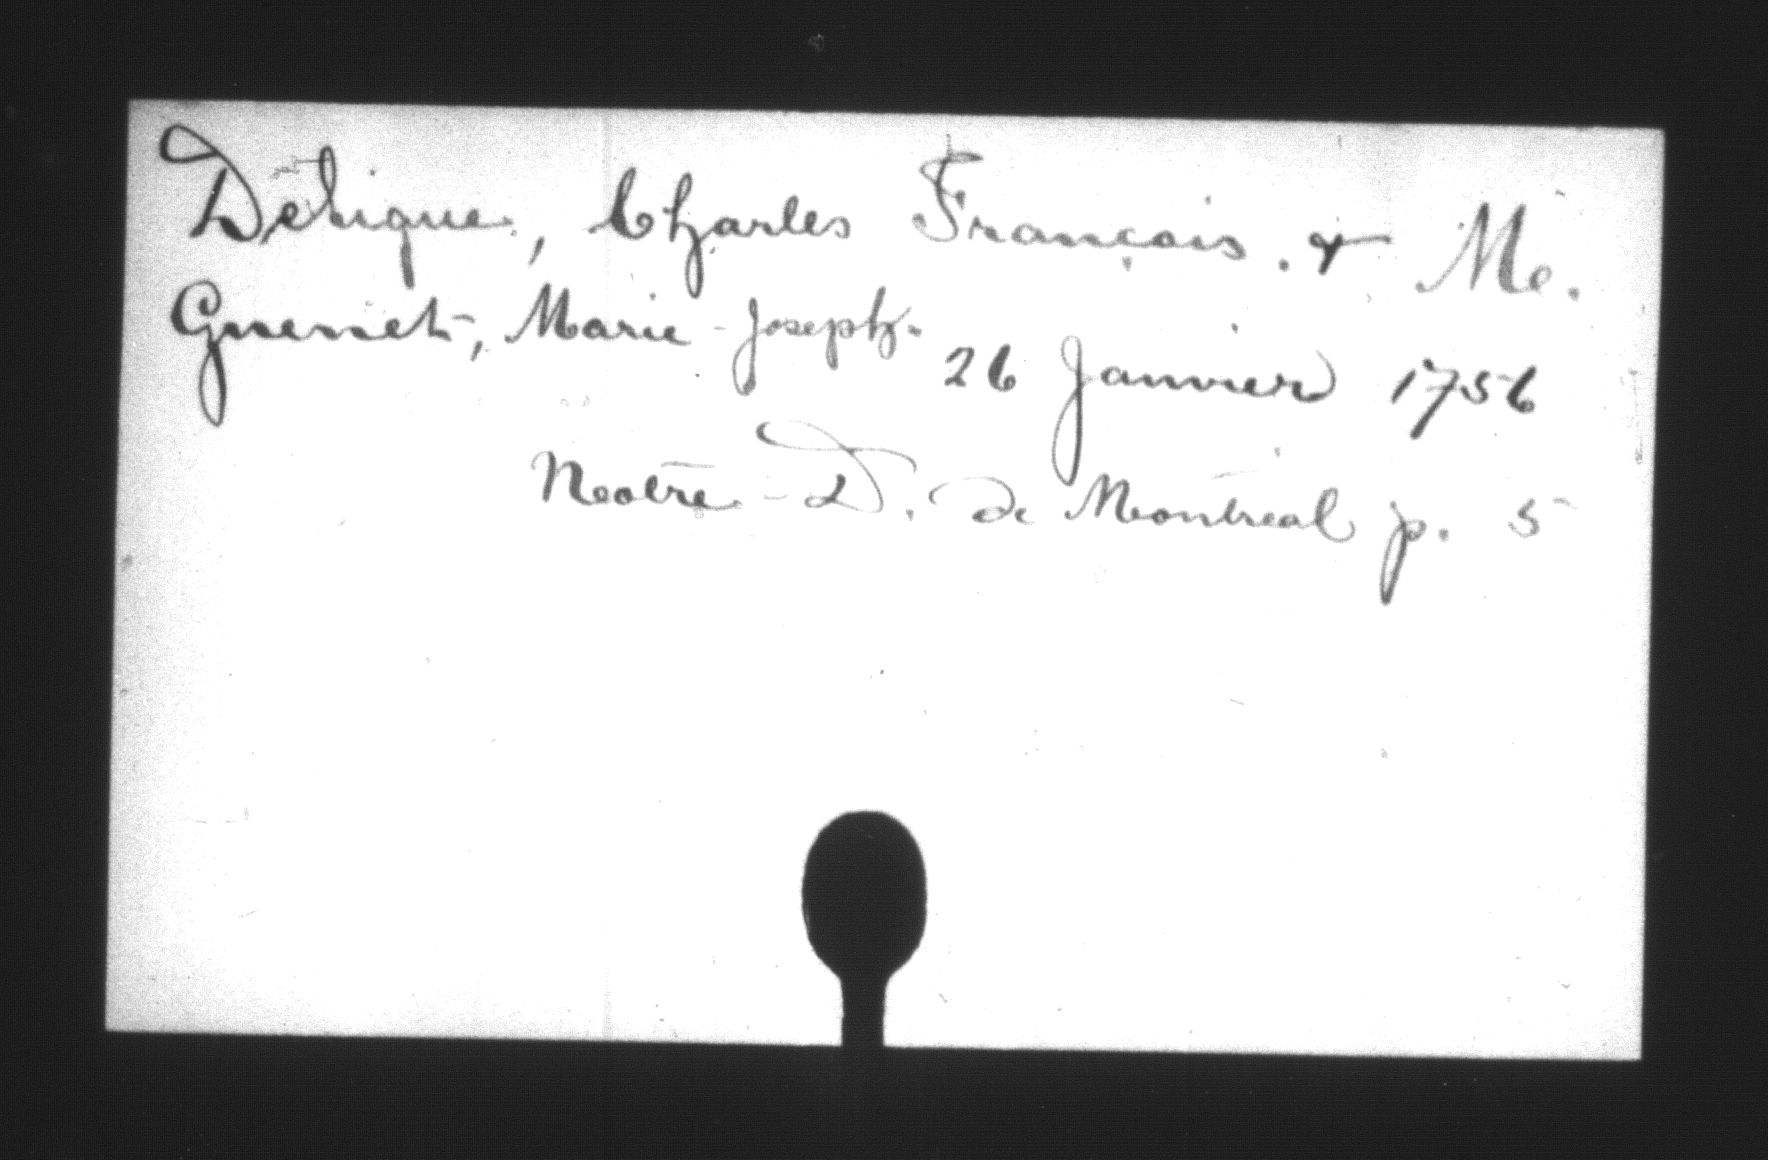 Deligue, Charles François. & Me.
Guenet, Marie-Joseph.
26 Janvier 1756
Nootre-D. de Montreal p. 5